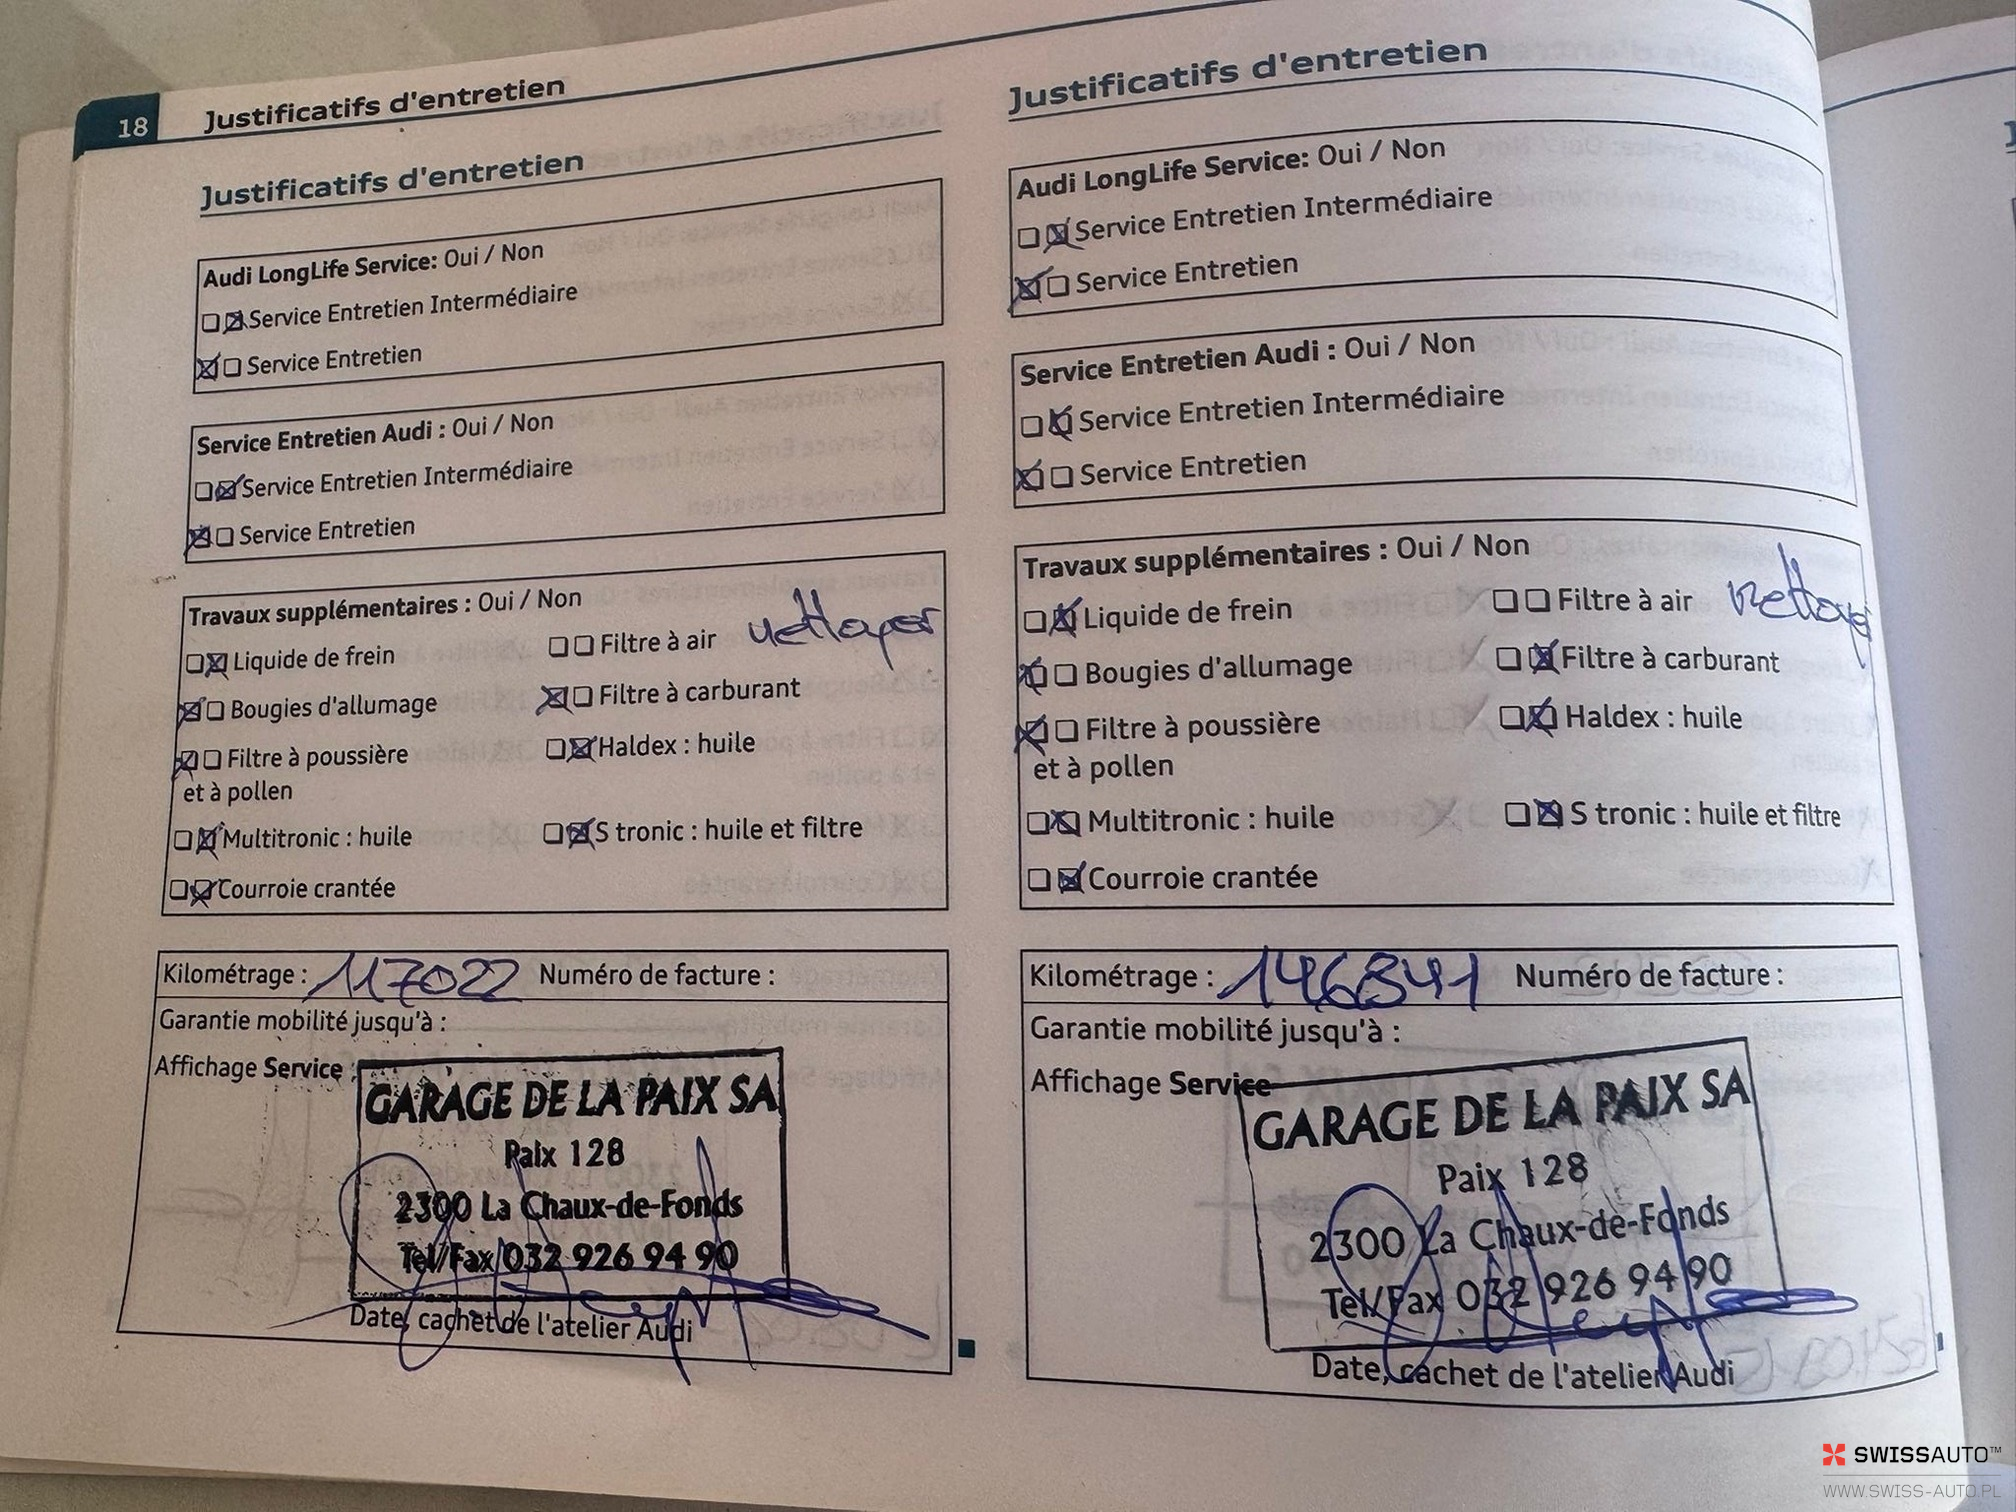 18
Justificatifs d'entretien
Justificatifs d'entretien
Audi LongLife Service: Oui / Non
Service Entretien Intermédiaire
Service Entretien
Service Entretien Audi : Oui / Non
Service Entretien Intermédiaire
Service Entretien
Travaux supplémentaires : Oui / Non
Liquide de frein
Filtre à air nettoyer
Bougies d'allumage
Filtre à carburant
Filtre à poussière
et à pollen
Haldex : huile
Multitronic : huile
S tronic : huile et filtre
Courroie crantée
Kilométrage : 117022 Numéro de facture :
Garantie mobilité jusqu'à :
Affichage Service :
GARAGE DE LA PAIX SA
Paix 128
2300 La Chaux-de-Fonds
Tel/Fax 032 926 94 90
Date, cachet de l'atelier Audi
Justificatifs d'entretien
Audi LongLife Service: Oui / Non
Service Entretien Intermédiaire
Service Entretien
Service Entretien Audi : Oui / Non
Service Entretien Intermédiaire
Service Entretien
Travaux supplémentaires : Oui / Non
Liquide de frein
Filtre à air nettoyer
Bougies d'allumage
Filtre à carburant
Filtre à poussière
et à pollen
Haldex : huile
Multitronic : huile
S tronic : huile et filtre
Courroie crantée
Kilométrage : 146841 Numéro de facture :
Garantie mobilité jusqu'à :
Affichage Service
GARAGE DE LA PAIX SA
Paix 128
2300 La Chaux-de-Fonds
Tel/Fax 032 926 94 90
Date, cachet de l'atelier Audi
SWISSAUTO™
WWW.SWISS-AUTO.PL